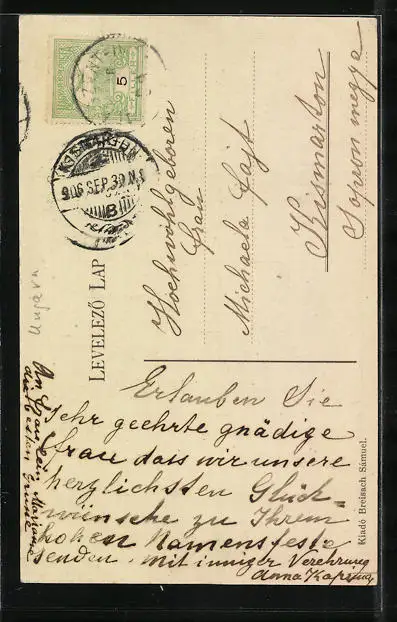 5
906 SEP 30 N.8
B
LEVELEZŐ LAP
Hochwohlgeboren
Frau
Michaela Fajt
Kismarton
Sopron megye
Ungarn
Erlauben Sie
sehr geehrte gnädige
Frau dass wir unsere
herzlichsten Glück=
wünsche zu Ihrem
hohen Namensfeste
senden. Mit inniger Verehrung
Anna
An Fräulein Mariane
die besten Grüsse
Kiadó Breissach Sámuel.